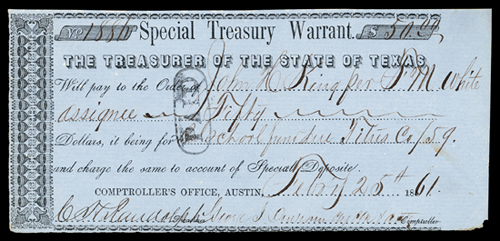 No. 1886 Special Treasury Warrant. $ 50.00
THE TREASURER OF THE STATE OF TEXAS
Will pay to the Order of John H. King per P. M. White
assignee Fifty
Dollars, it being for School fund due Titus Co/59.
PAID
and charge the same to account of Special Deposite.
COMPTROLLER'S OFFICE, AUSTIN, Feby 25th 1861.
C. H. Randolph
Comptroller